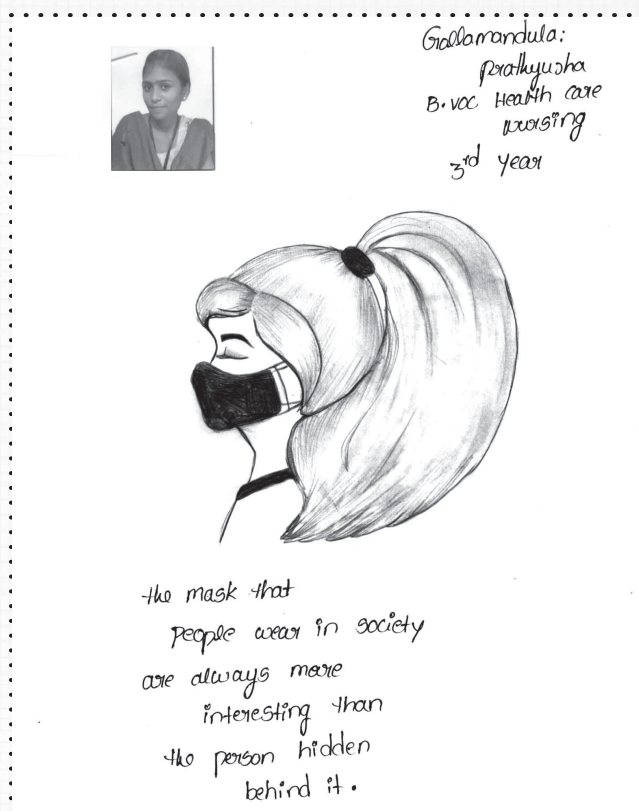 Gallamandula:
Prathyusha
B.voc Health care
nursing
3rd year
the mask that
People wear in society
are always more
interesting than
the person hidden
behind it.